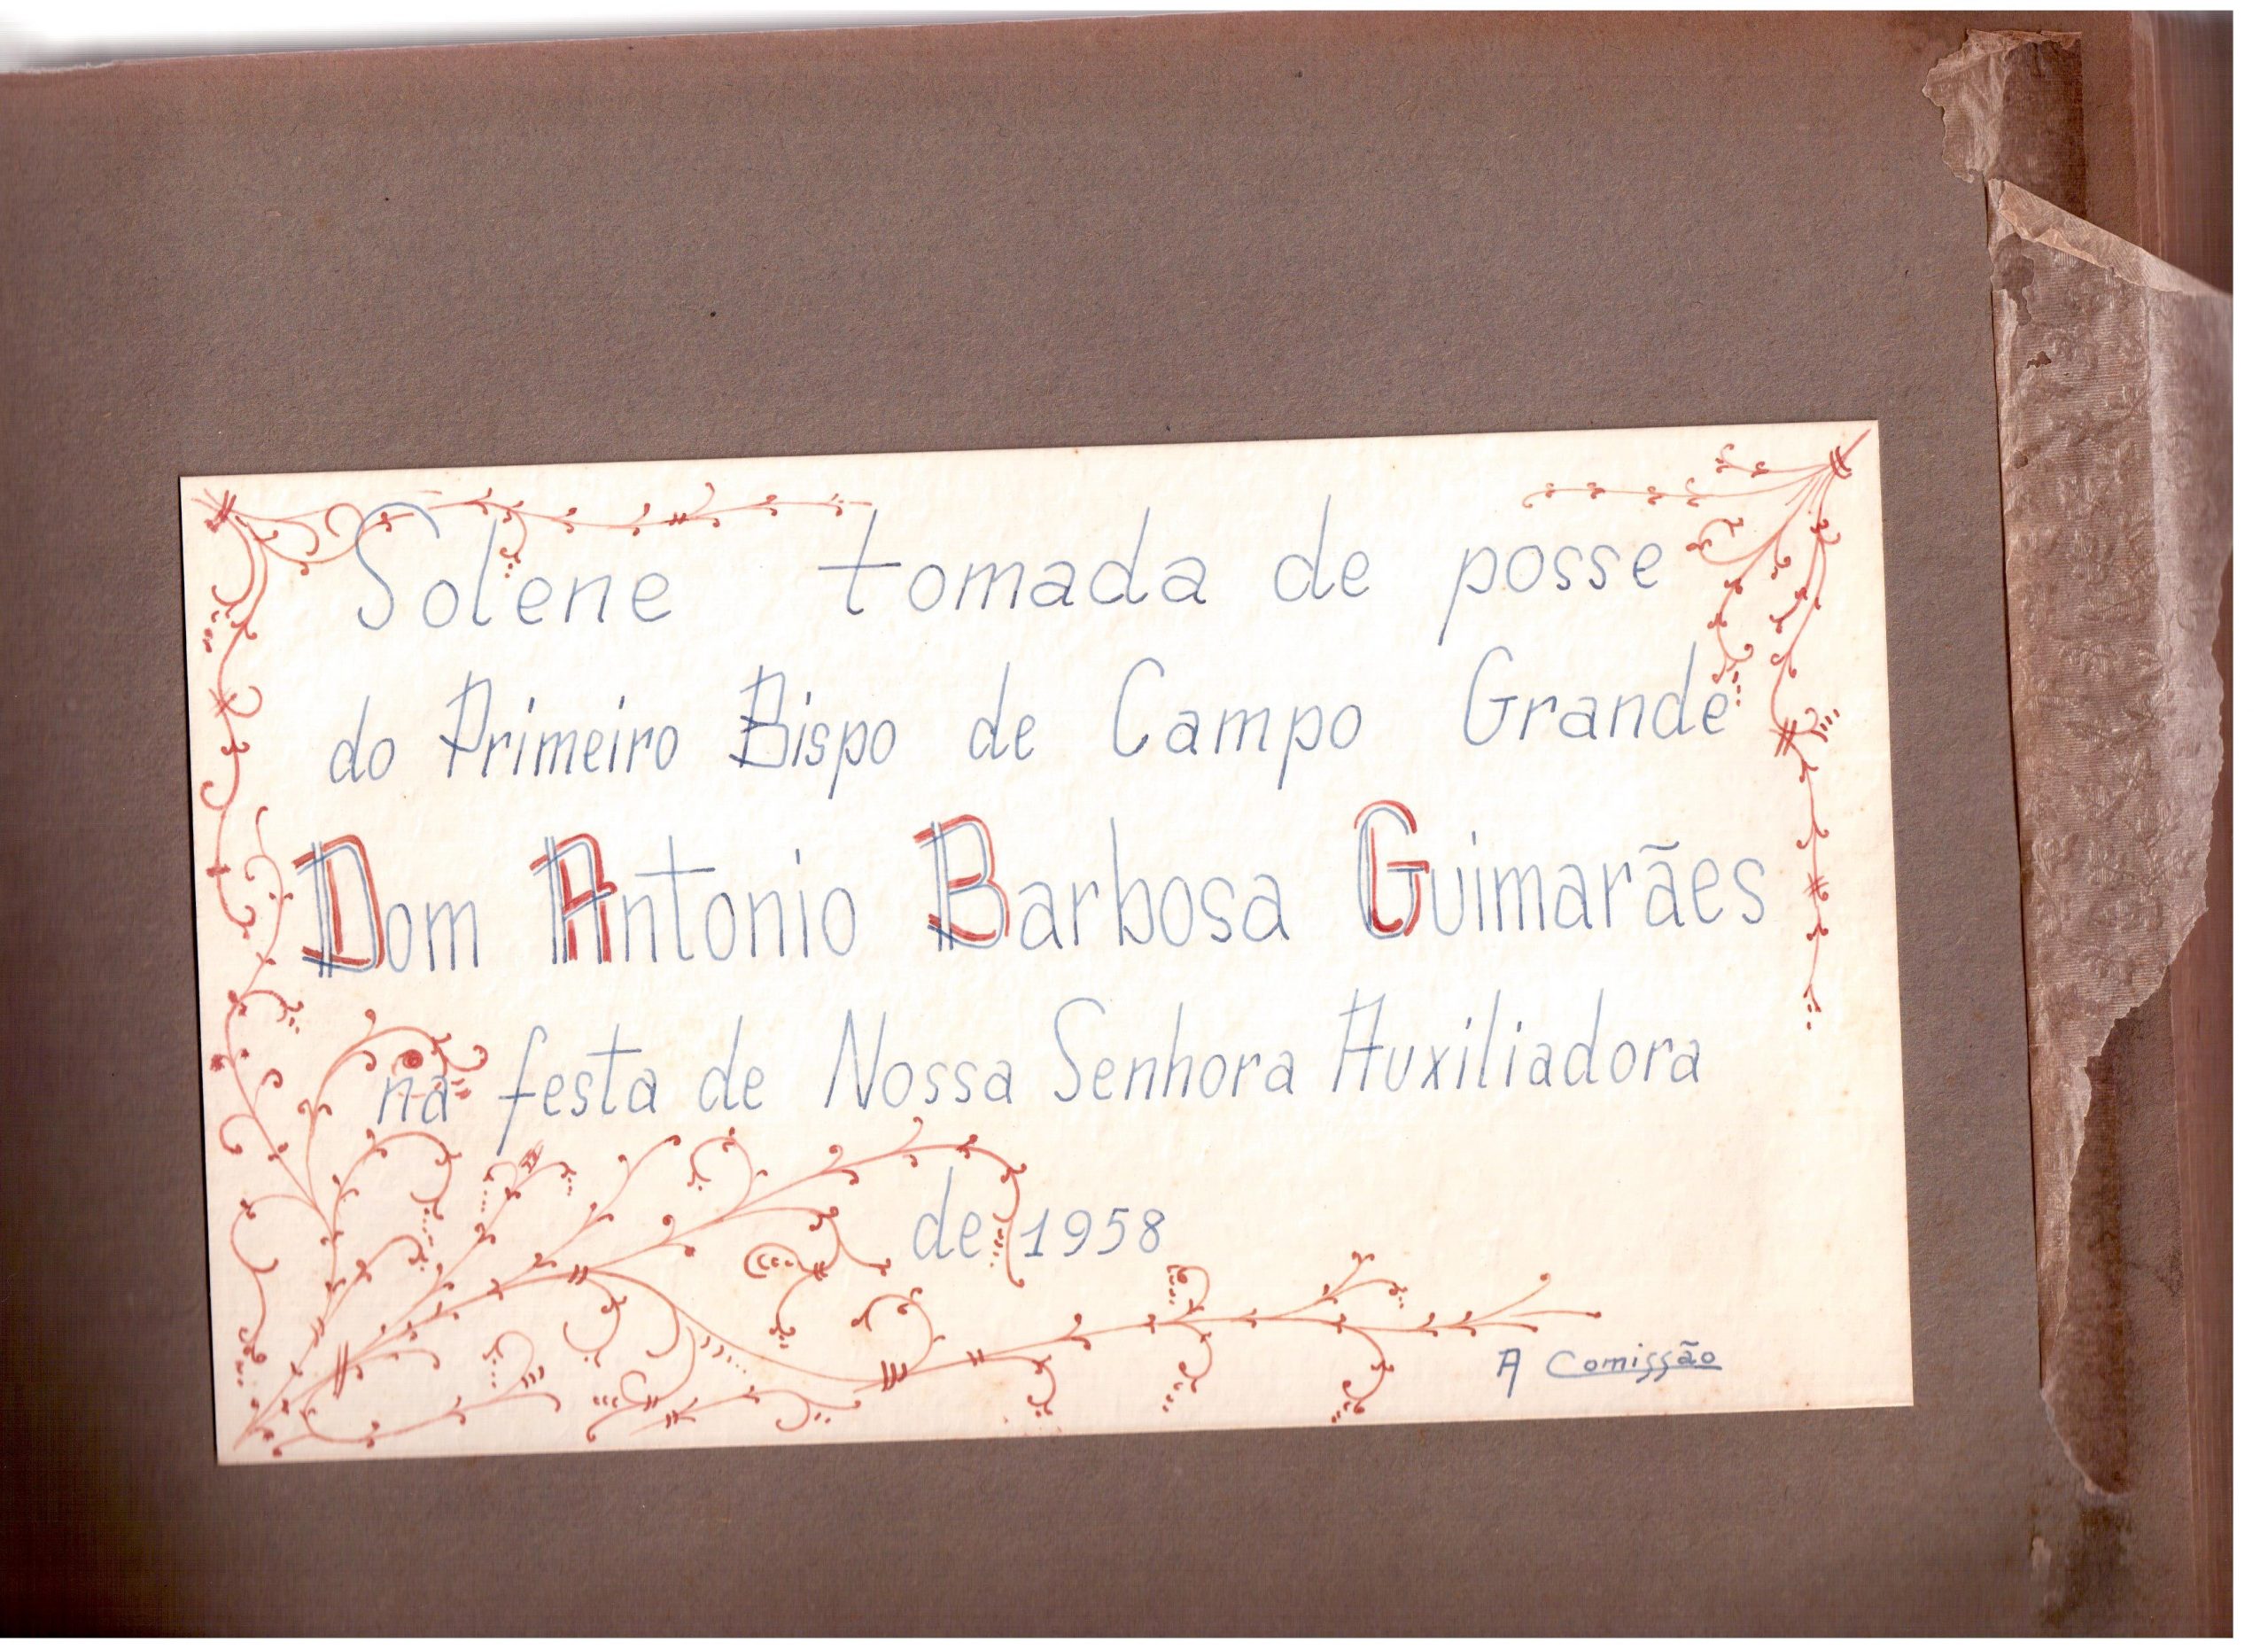 Solene tomada de posse
do Primeiro Bispo de Campo Grande
Dom Antonio Barbosa Guimarães
na festa de Nossa Senhora Auxiliadora
de 1958
A Comissão